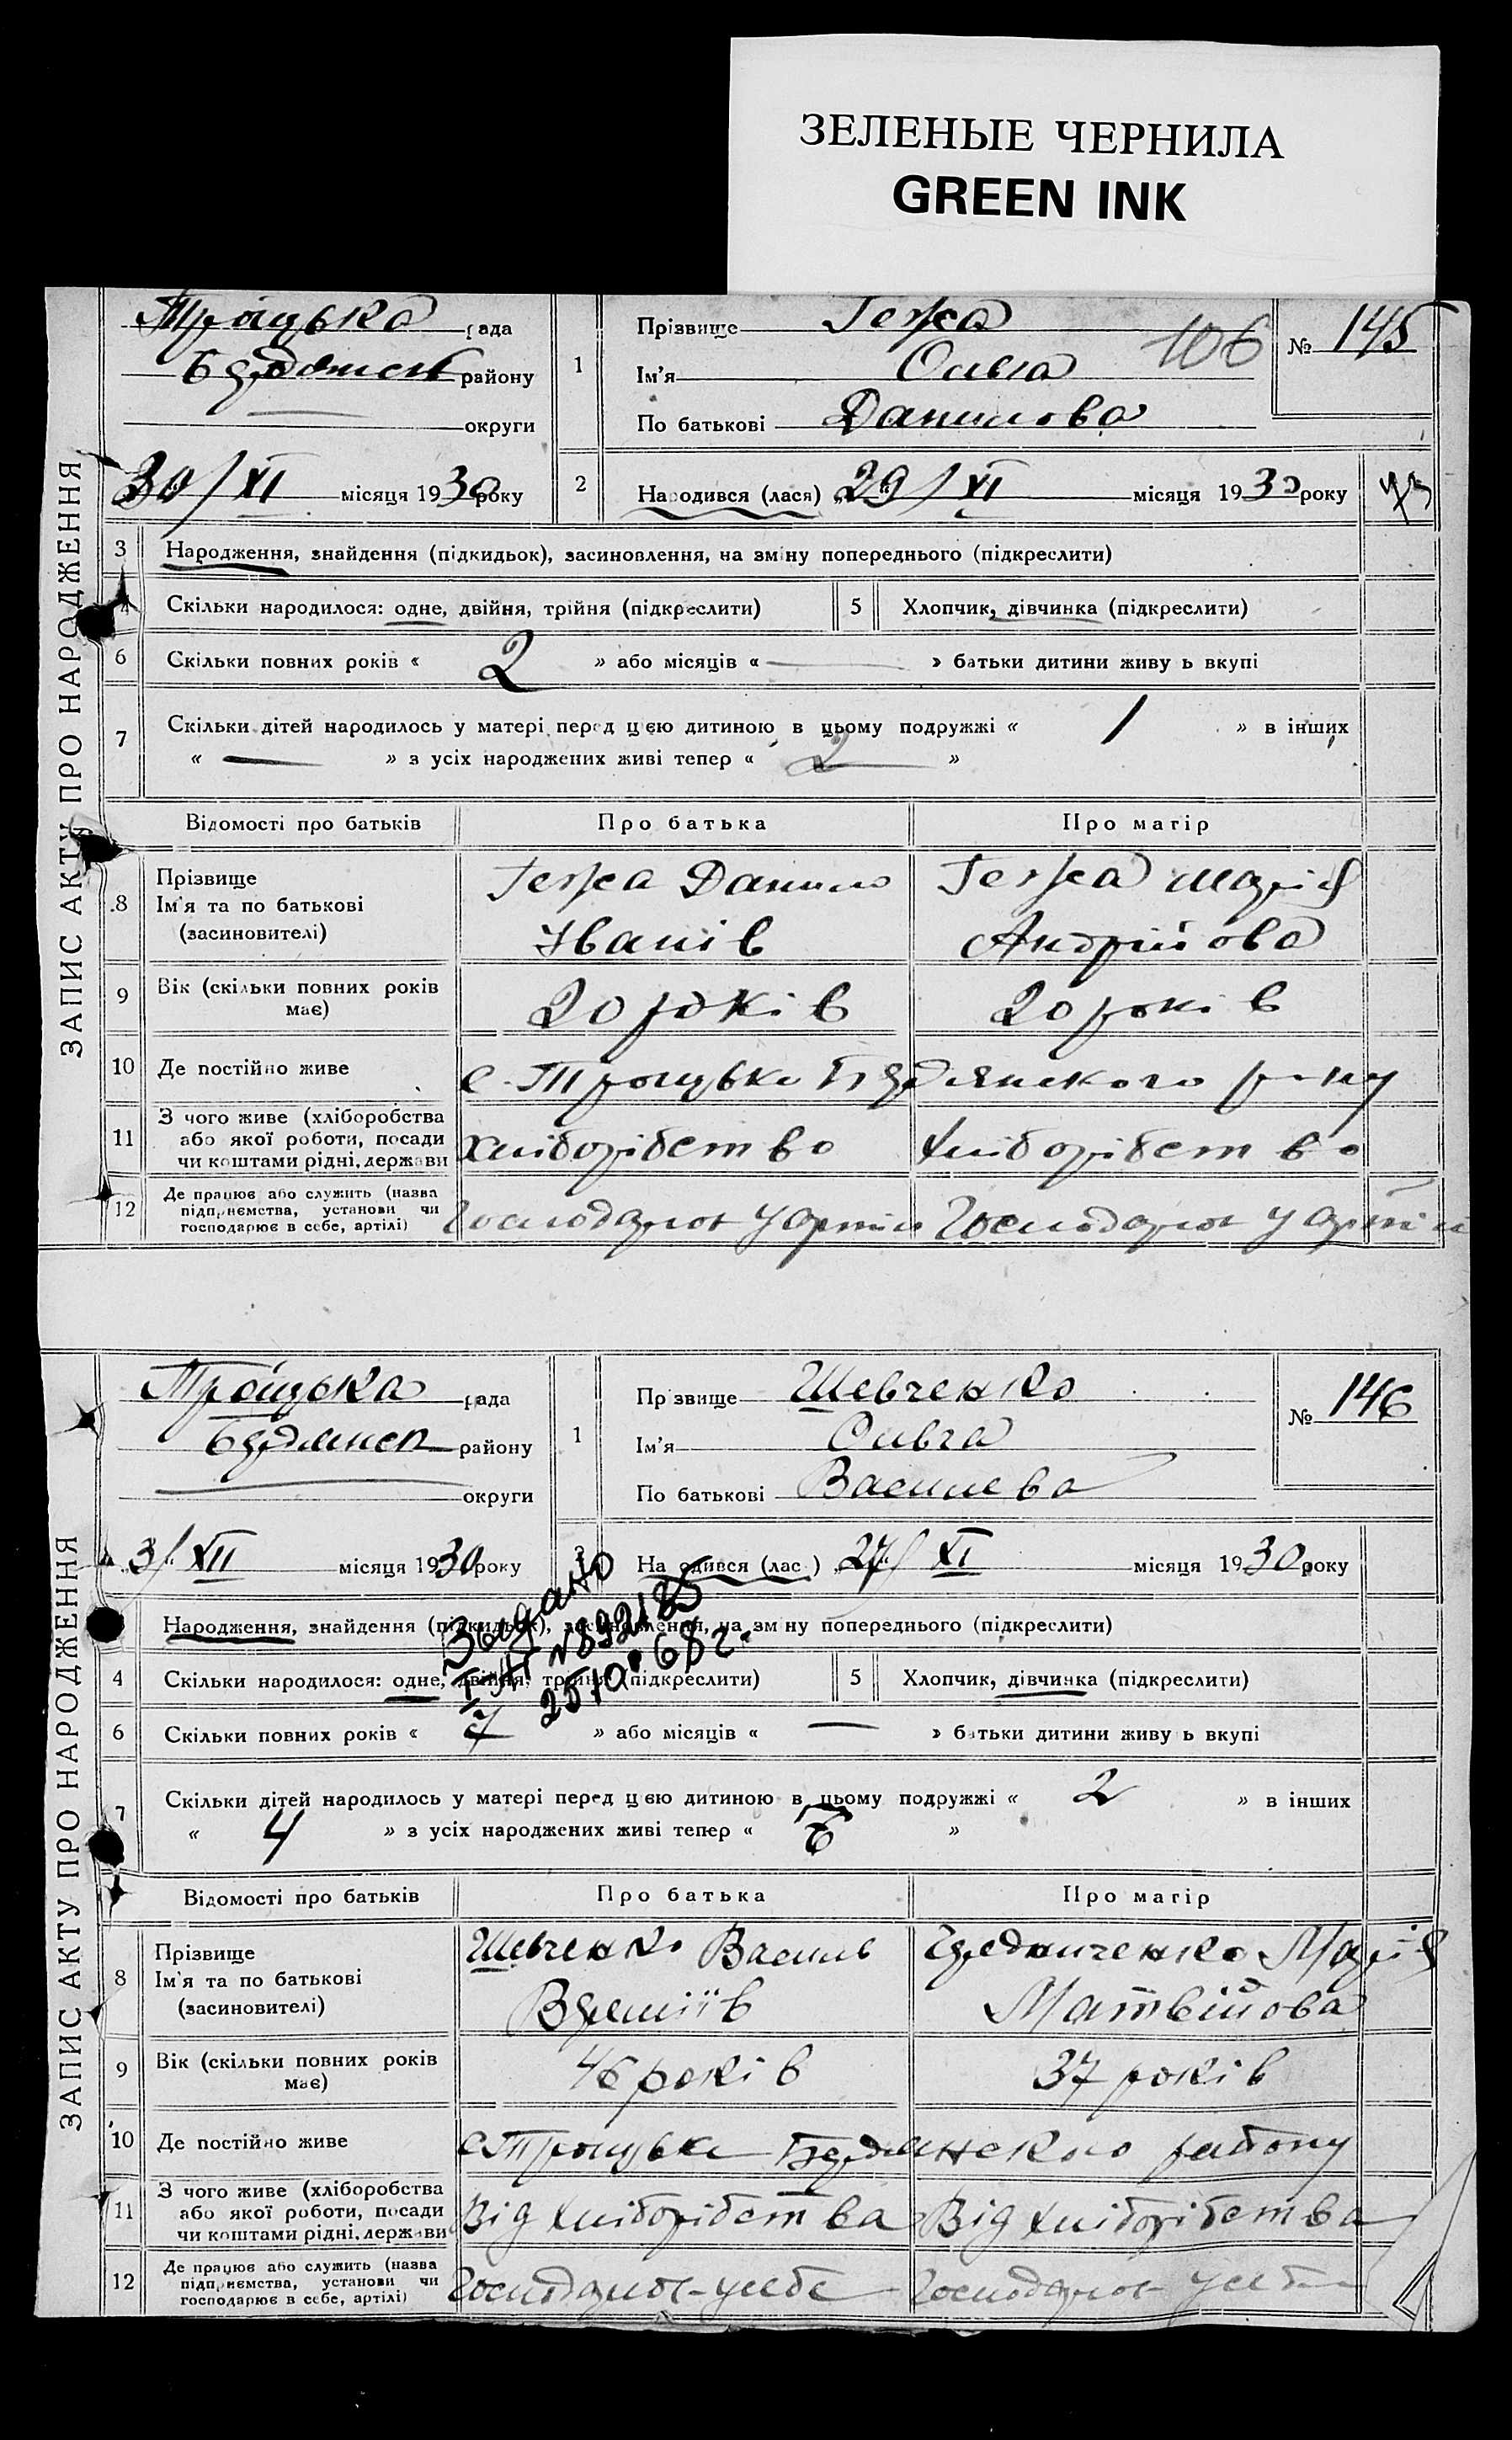 ЗЕЛЕНЫЕ ЧЕРНИЛА
GREEN INK
ЗАПИС АКТУ ПРО НАРОДЖЕННЯ
Троїцька рада
району
округи
30/XI місяця 1930 року
1
Прізвище
Ім'я Ольга
По батькові Данилова
106
№ 145
2 Народився (лася) 29/XI місяця 1930 року
3 Народження, знайдення (підкидьок), засиновлення, на зміну попереднього (підкреслити)
4 Скільки народилося: одне, двійня, трійня (підкреслити) 5 Хлопчик, дівчинка (підкреслити)
6 Скільки повних років « 2 » або місяців « — » батьки дитини живу ь вкупі
7 Скільки дітей народилось у матері перед цією дитиною в цьому подружжі « 1 » в інших
« — » з усіх народжених живі тепер « 2 »
Відомості про батьків Про батька Про матір
8 Прізвище
Ім'я та по батькові
(засиновителі)
Данило
Іванів
Марія
Андрійова
9 Вік (скільки повних років має) 20 років 20 років
10 Де постійно живе с. Троцьке Бердянского р-ну
11 З чого живе (хліборобства або якої роботи, посади чи коштами рідні, держави хліборібство хліборібство
12 Де працює або служить (назва підприємства, установи чи господарює в себе, артілі) Господарює у артілі Господарює у артілі
ЗАПИС АКТУ ПРО НАРОДЖЕННЯ
Троїцька рада
Бердянск району
округи
3/XII місяця 1930 року
1
Прізвище Шевченко
Ім'я Ольга
По батькові Василева
№ 146
2 Народився (лася) 27/XI місяця 1930 року
Народження, знайдення (підкидьок), засиновлення, на зміну попереднього (підкреслити)
4 Скільки народилося: одне, двійня, трійня (підкреслити) 5 Хлопчик, дівчинка (підкреслити)
6 Скільки повних років « 7 » або місяців « — » батьки дитини живу ь вкупі
7 Скільки дітей народилось у матері перед цією дитиною в цьому подружжі « 2 » в інших
« 4 » з усіх народжених живі тепер « 6 »
Відомості про батьків Про батька Про матір
8 Прізвище
Ім'я та по батькові
(засиновителі)
Шевченко Василь
Марія
Матвійова
9 Вік (скільки повних років має) 46 років 37 років
10 Де постійно живе с. Троцьке Бердянского району
11 З чого живе (хліборобства або якої роботи, посади чи коштами рідні, держави Від хліборібства Від хліборібства
12 Де працює або служить (назва підприємства, установи чи господарює в себе, артілі) Господарює у себе Господарює у себе